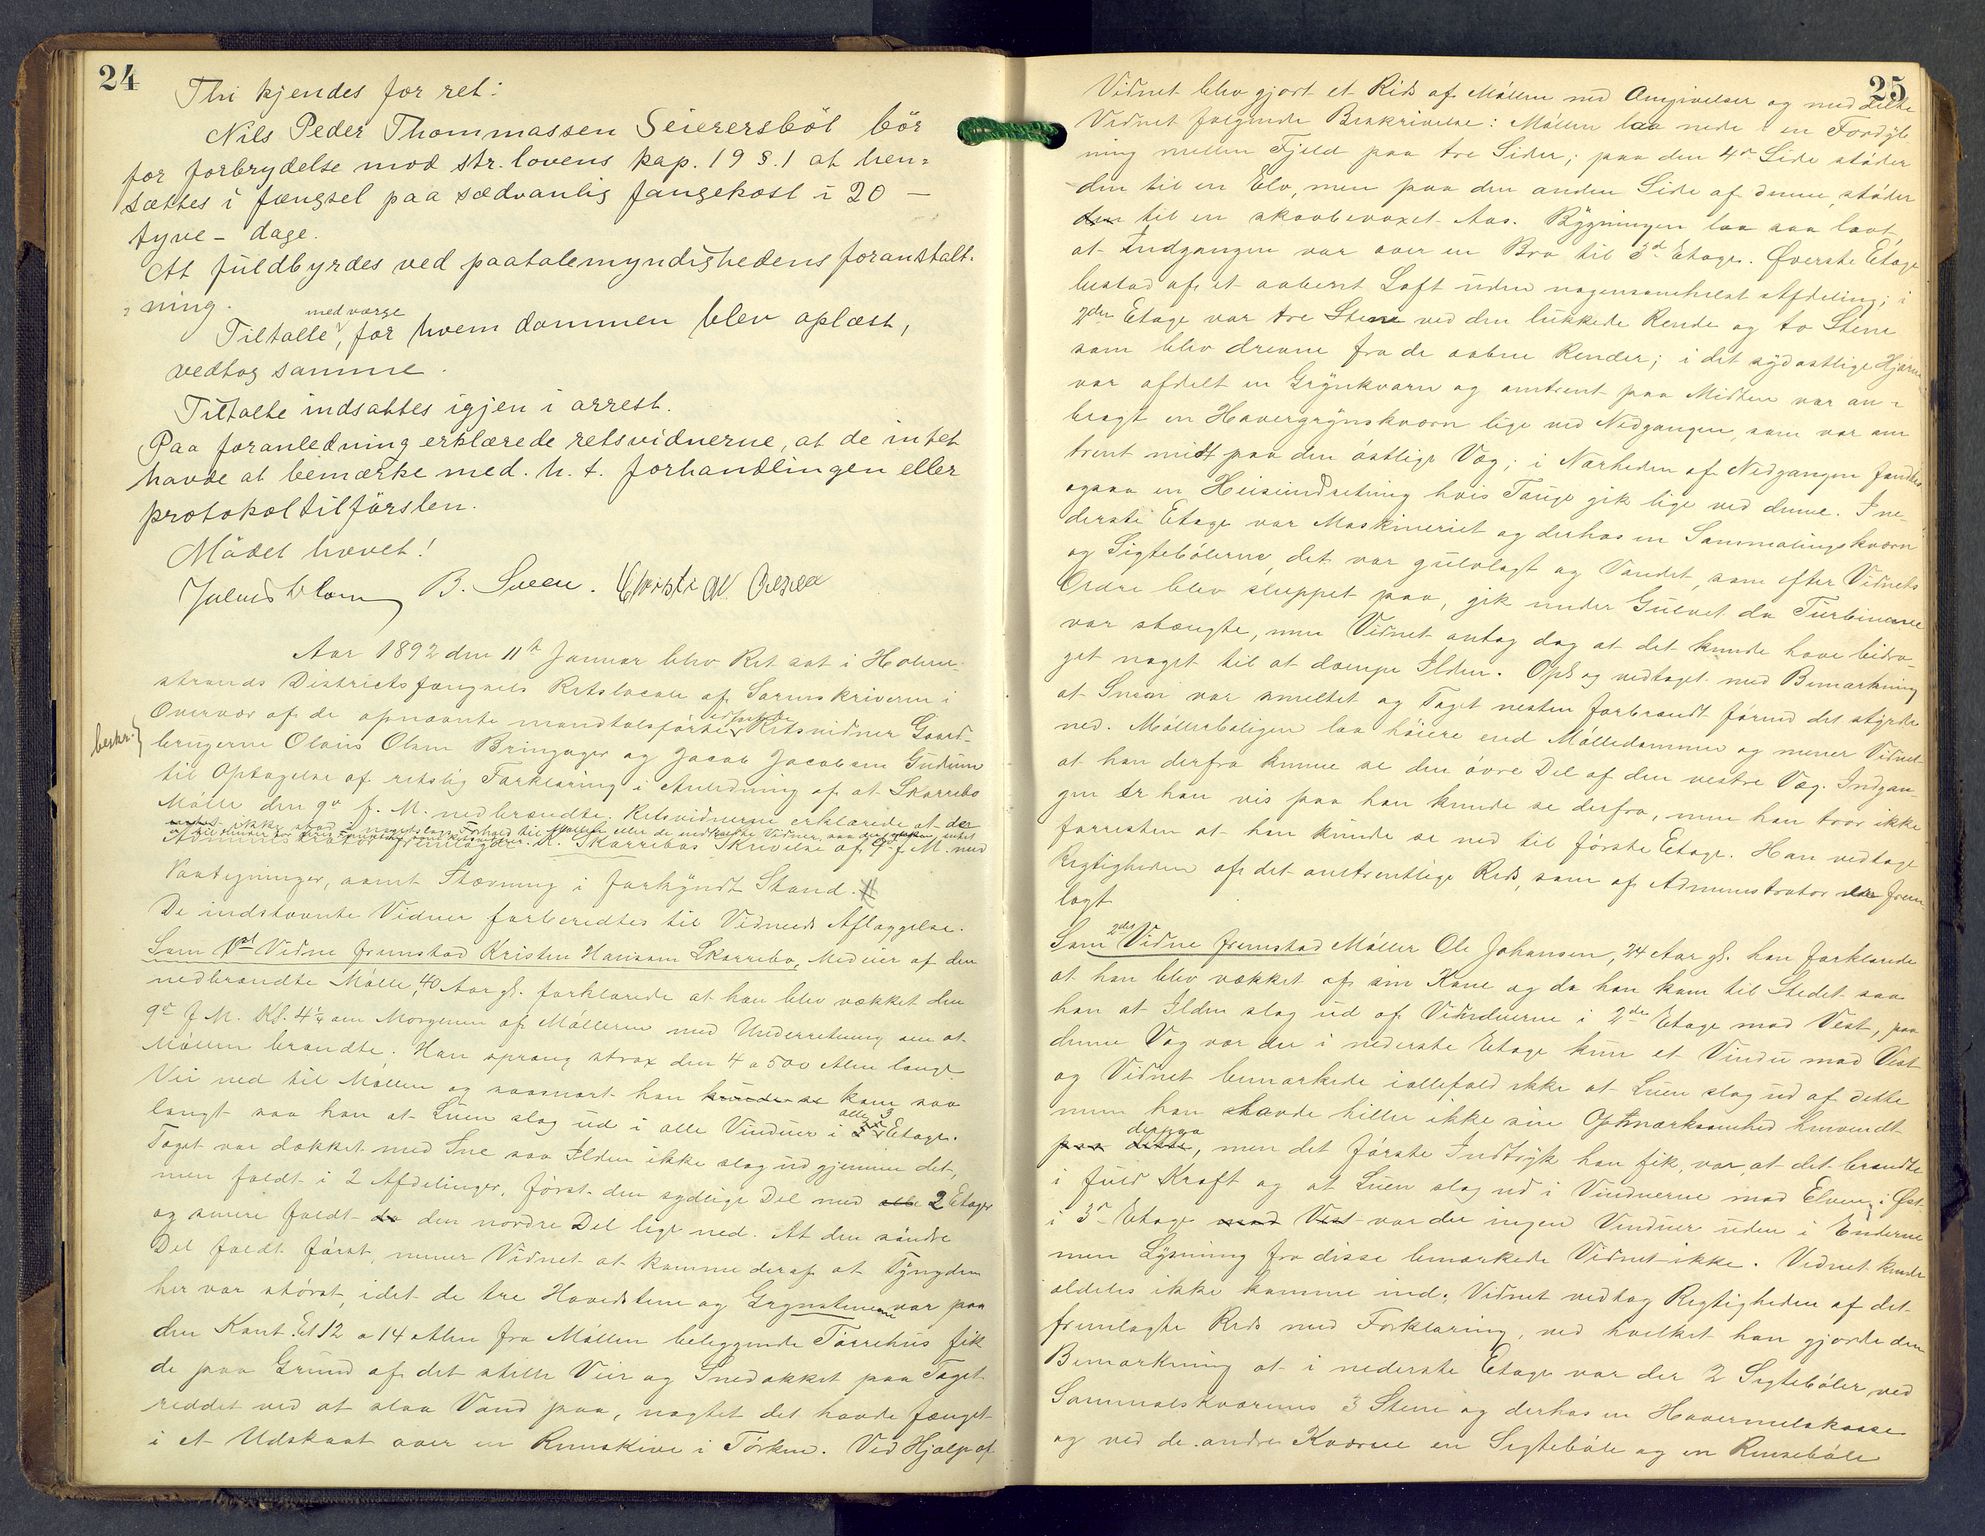 24
Thi kjendes for ret:
Nils Peder Thommassen Seierersböl bör
for forbrydelse mod str. lovens kap. 19 § 1 at hen-
sættes i fængsel paa sædvanlig fangekost i 20 -
tyve - dage.
At fuldbyrdes ved paatalemyndighedens foranstalt-
ning.
med værge
Tiltalte, for hvem dommen blev oplæst,
vedtog samme.
Tiltalte indsattes igjen i arrest.
Paa foranledning erklærede retsvidnerne, at de intet
havde at bemærke med. h. t. forhandlingen eller
protokoltilförslen.
Mödet hævet!
Julius Blom B. Sveen.
Aar 1892 den 11te Januar blev Ret sat i Holme-
strands Districtsfængsels Retslocale af Sorenskriveren i
Overvær af de opnævnte mandtalsførte edfæstede Retsvidner Gaard-
beskr.
brugerne Olaus Olsen Bringager og Jacob Jacobsen Gudum
til Optagelse af retslig Forklaring i Anledning af at Skarrebo
Mølle den 9de f. M. nedbrændte. Retsvidnerne erklærede at der
ikke stod i noget slags Forhold til Møllen eller de indkaldte Vidner
Administrator fremlagde K. Skarrebos Skrivelse af 9. f. M. med
Paategninger, samt Stævning i forkyndt Stand. #
De indstævnte Vidner forberedtes til Vidneds Aflæggelse.
Som 1ste Vidne fremstod Kristen Hansen Skarrebo, Medeier af den
nedbrændte Mølle, 40 Aar gl. forklarede at han blev vækket den
9de f. M. Kl. 4 1/4 om Morgenen af Mølleren med Underretning om at
Møllen brændte. Han sprang strax den 4 a 500 Alen lange
Vei ned til Møllen og saasnart han kunde se kom saa
langt saa han at Luen slog ud i alle Vinduer i alle 3 Etager.
Taget var dækket med Sne saa Ilden ikke slog ud gjennem det,
men faldt i 2 Afdelinger, först den sydlige Del med alle 2 Etager
og senere faldt da den nordre Del lige ned. At den søndre
Del faldt først, mener Vidnet at komme deraf at Tyngden
her var størst, idet de tre Hovedstene og Grynstenene var paa
den Kant. Et 12 a 14 Alen fra Møllen beliggende Tørrehus fik
de paa Grund af det stille Veir og Snedækket paa Taget
reddet ved at slaa Vand paa, uagtet det havde fænget
i et Udskaat over en Remskive i Tørken. Ved Hjælp af
25
Vidnet blev gjort et Rids af Møllen med Angivelser og meddelte
Vidnet følgende Beskrivelse: Møllen laa nede i en Fordyb-
ning mellem Fjeld paa tre Sider; paa den 4de Side støder
den til en Elv, men paa den anden Side af denne støder
den til en skovbevoxet Aas. Bygningen laa saa lavt,
at Indgangen var over en Bro til 3de Etage. Øverste Etage
bestod af et aabent Loft uden nogensomhelst Afdeling; i
2den Etage var tre Stene ved den lukkede Rende og to Stene
som blev drevne fra de aabne Render; i det sydostlige Hjørne
var afdelt en Grynkværn og omtrent paa Midten var an-
bragt en Havregrynskværn lige ved Nedgangen, som var om-
trent midt paa den østlige Væg; i Nærheden af Nedgangen fandtes
ogsaa en Heiseindretning hvis Tauge gik lige ved denne. I ne-
derste Etage var Maskineriet og derhos en Sammalingskværn
og Sigtebølerne, det var gulvlagt og Vandet, som efter Vidnets
Ordre blev sluppet paa, gik under Gulvet da Turbinerne
var stængte, men Vidnet antog dog at det kunde have bidra-
get noget til at dæmpe Ilden. Opl. og vedtaget med Bemærkning
at Sneen var smeltet og Taget nesten forbrændt førend det styrtede
ned. Møllerboligen laa høiere end Mølledammen og mener Vidnet
at han derfra kunne se den øvre Del af den vestre Væg. Indgan-
gen er han vis paa han kunde se derfra, men han tror ikke
forresten at han kunde se ned til første Etage. Han vedtoge
Rigtigheden af det omtrentlige Rids, som af Administrator blev frem-
lagt
Som 2det Vidne fremstod Møller Ole Johansen, 24 Aar gl. han forklarede
at han blev vækket af sin Kone og da han kom til Stedet saa
han at Ilden slog ud af Vinduerne i 2den Etage mod Vest, paa
denne Væg var der i nederste Etage kun et Vindu mod Vest
og Vidnet bemærkede iallefald ikke at Luen slog ud af dette
men han havde heller ikke sin Opmærksomhed henvendt
paa dette derpaa, men det første Indtryk han fik, var at det brændte
i fuld Kraft og at Luen slog ud i Vinduerne mod Elven, i Øst.
i 3de Etage mod Vest var der ingen Vinduer uden i Enderne
men Lysning fra disse bemærkede Vidnet ikke. Vidnet kunde
aldeles ikke komme ind. Vidnet vedtog Rigtigheden af det
fremlagte Rids med Forklaring, ved hvilket han gjorde den
Bemærkning at i nederste Etage var der 2 Sigtebøler, ved
Sammalskværnens 3 Stene og derhos en Havremelskasse
og ved de andre Kværne en Sigtebøle og en Rensebøle